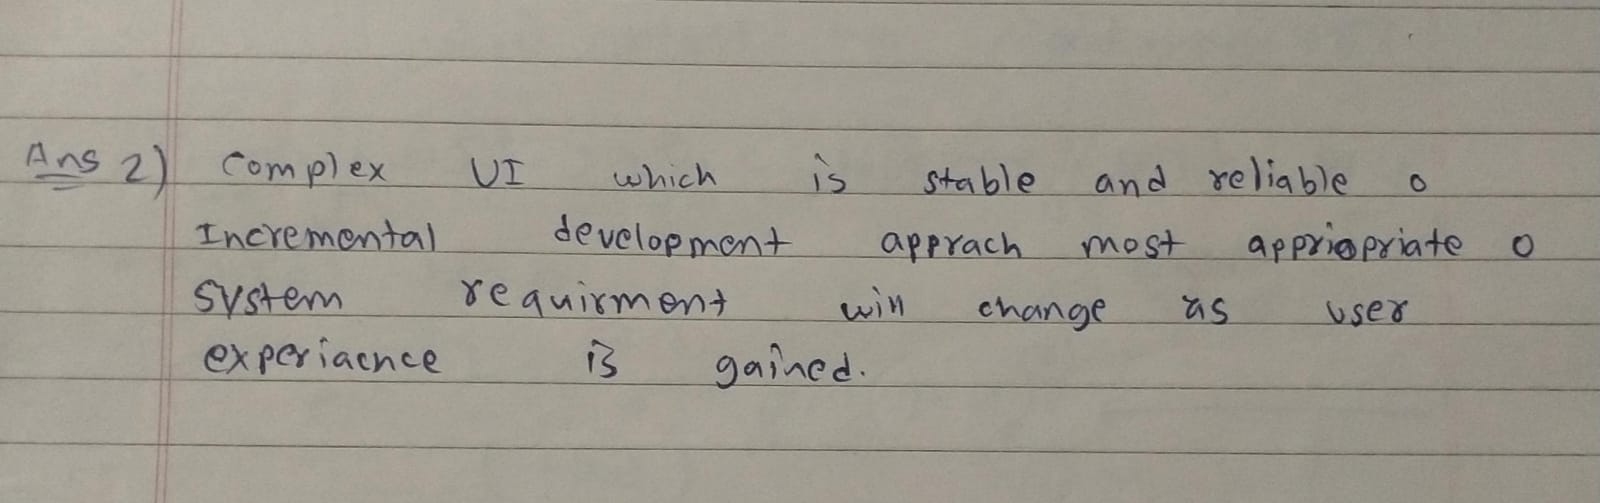 Ans 2) Complex UI which is stable and reliable o
Incremental development apprach most appriopriate o
System requirment will change as user
experiacnce is gained.